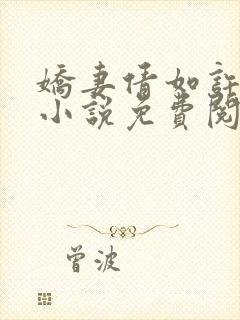 嬌妻情如許
小說免費閱
曾波